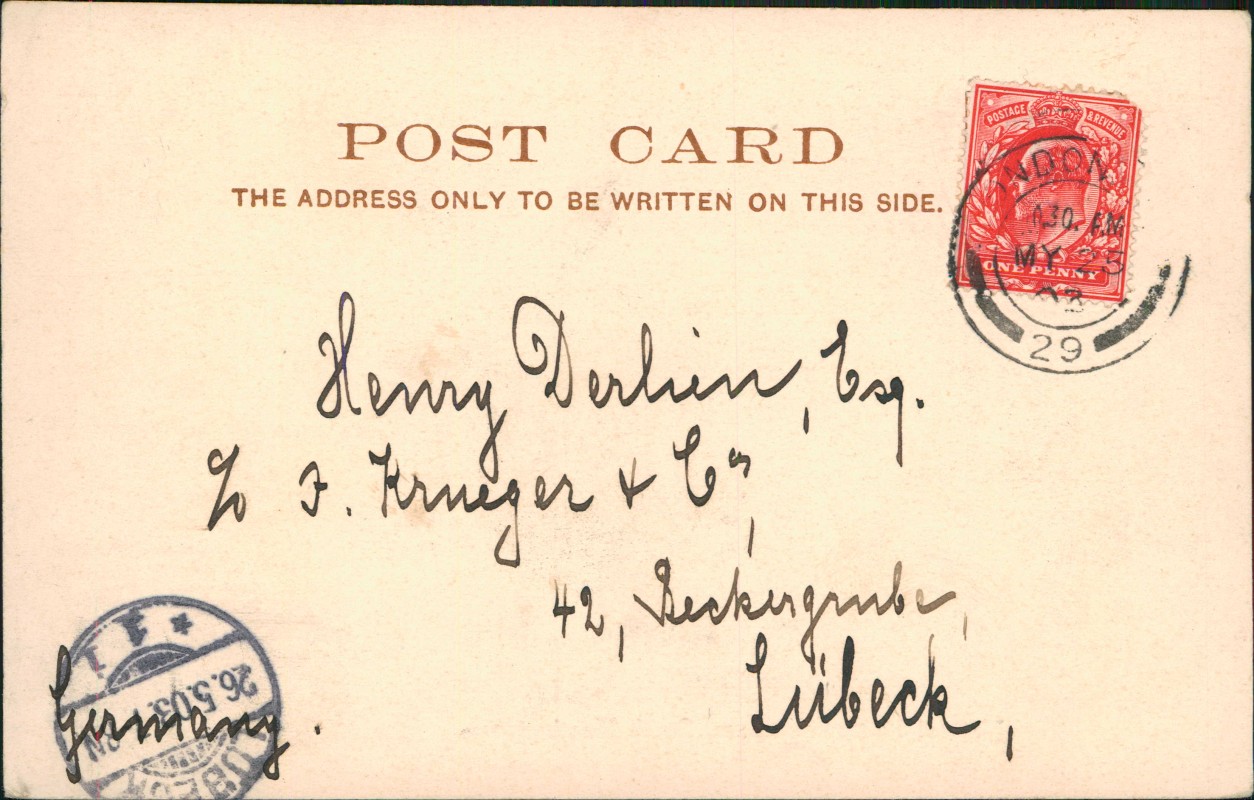 POST CARD
THE ADDRESS ONLY TO BE WRITTEN ON THIS SIDE.
POSTAGE & REVENUE
ONE PENNY
MY 25
03
29
Henry Derlien, Esq.
c/o F. Krueger & Co,
42, Beckergrube,
Lübeck,
Germany.
26.5.03.